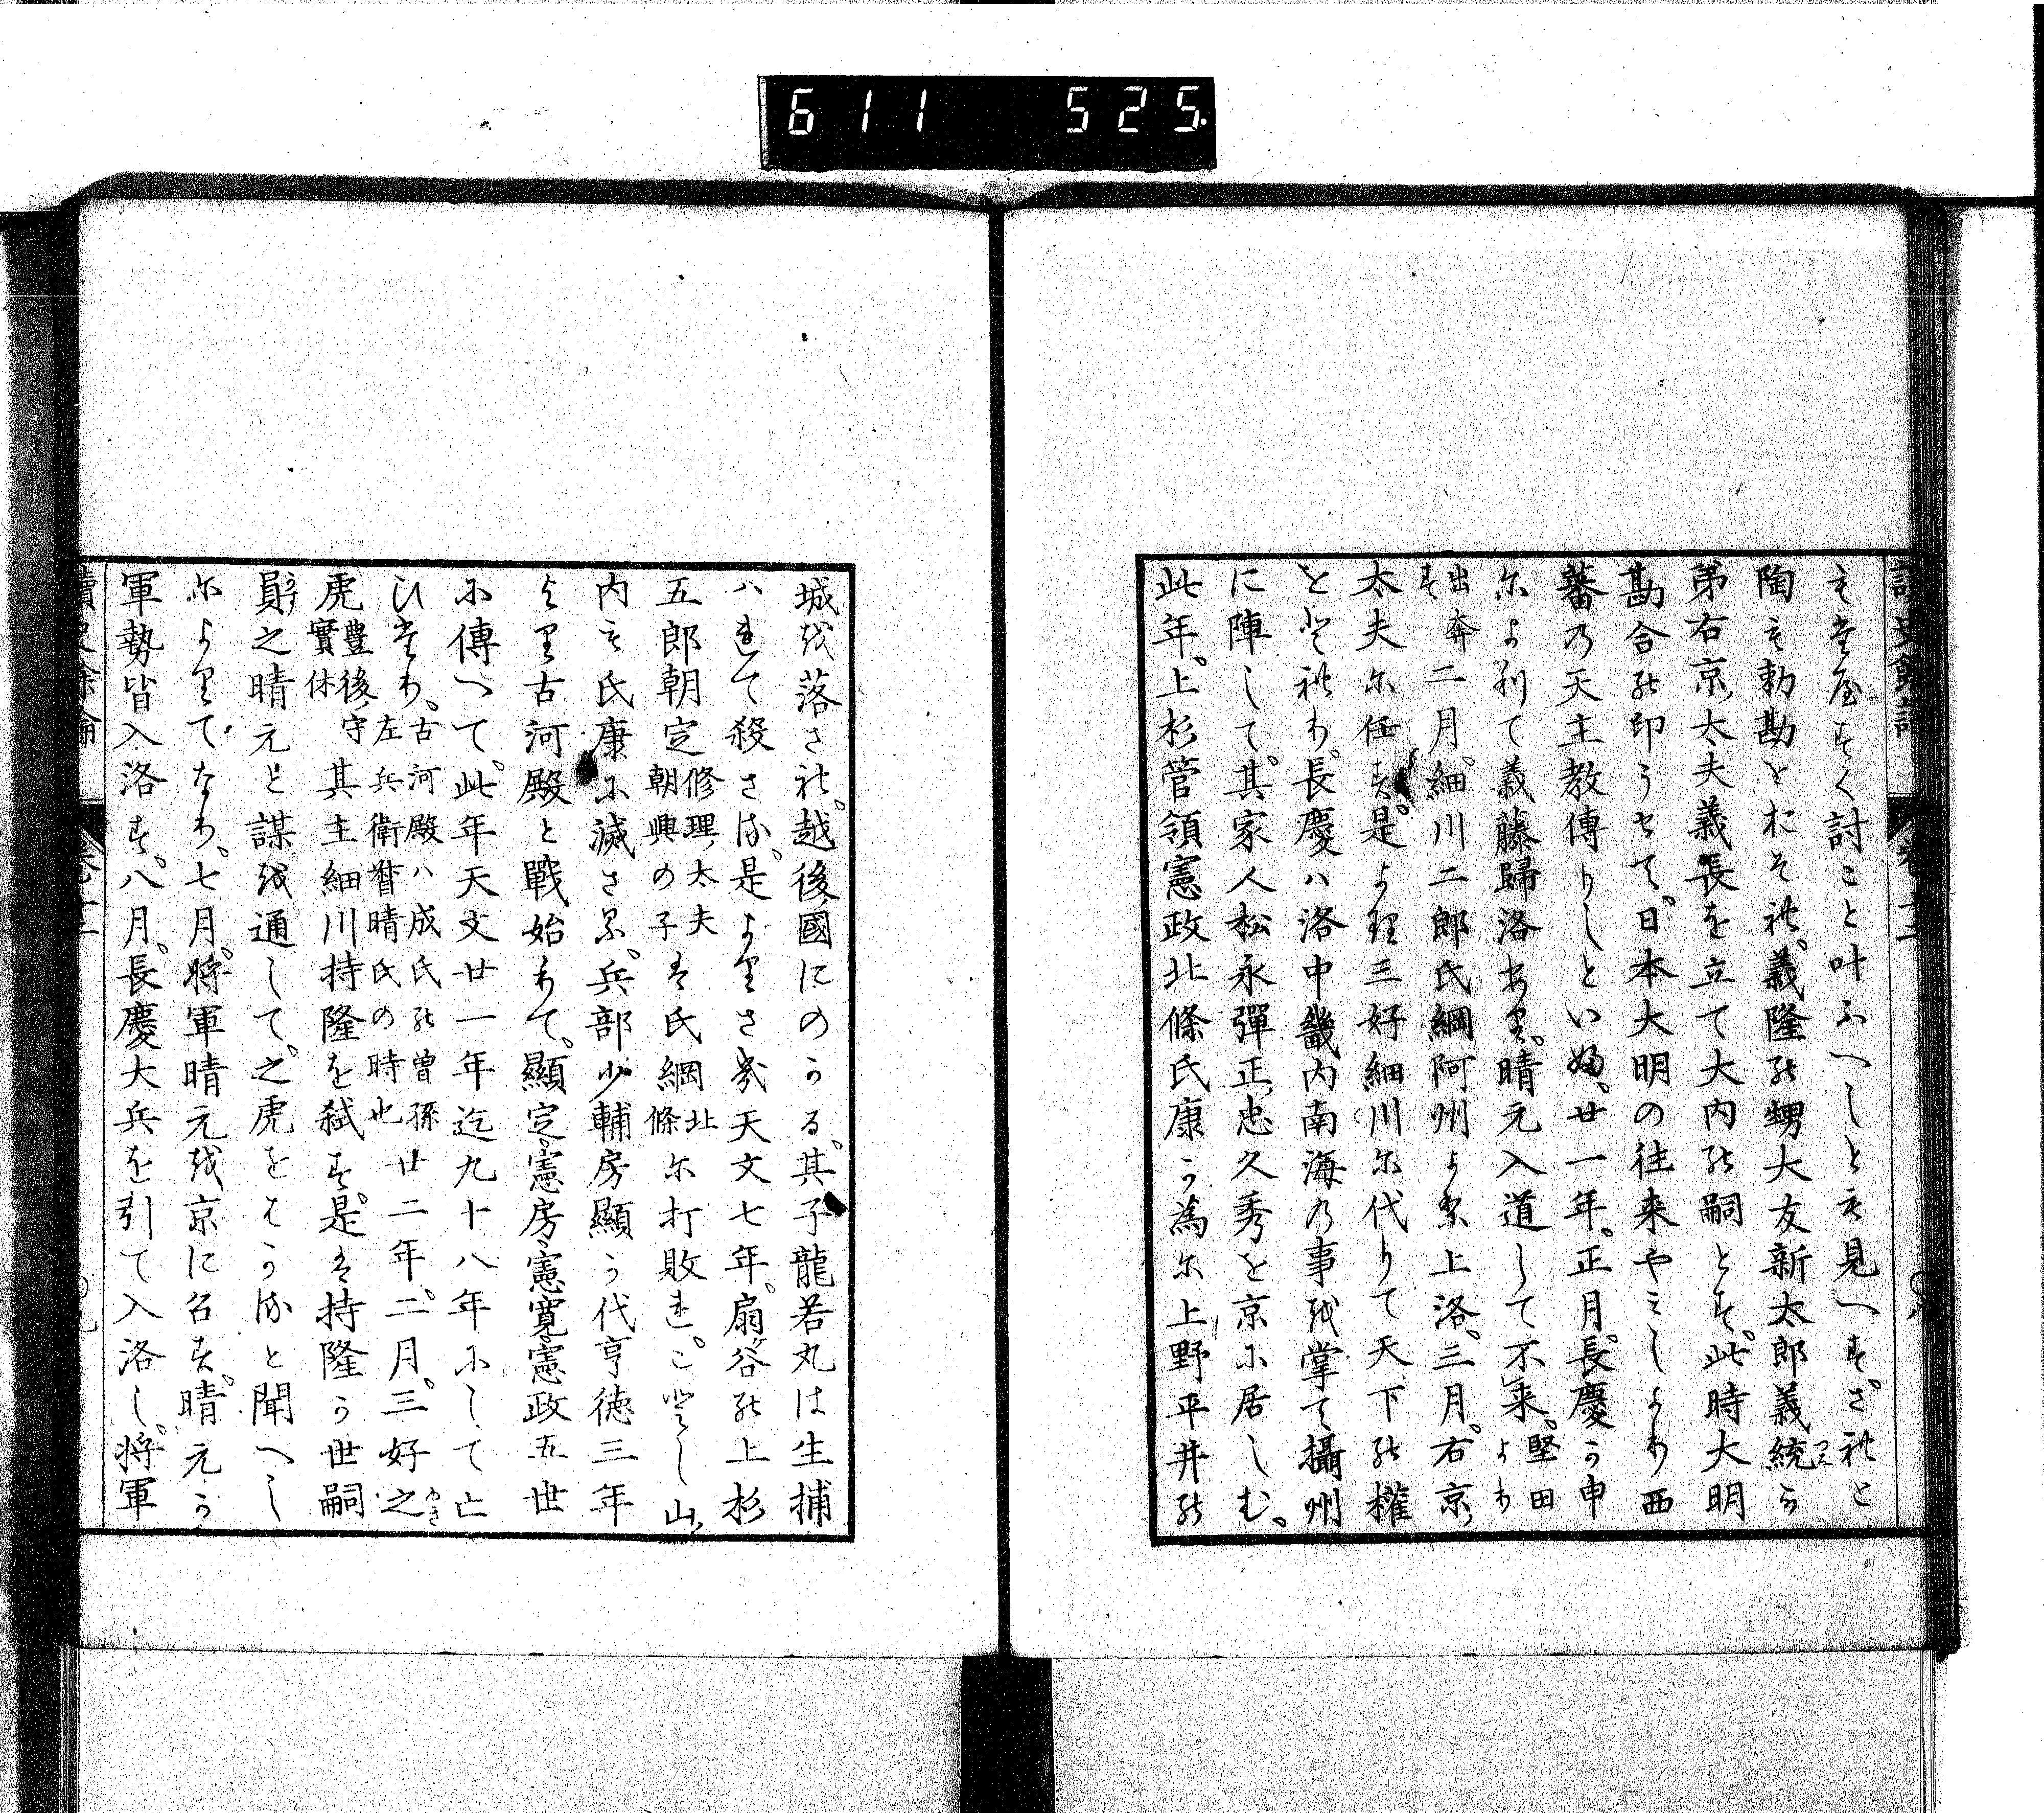 611 525.
もたやすく討こと叶ふへしとも見へす。されと
陶も勅勘をおそれ。義隆の甥大友新太郎義統か
弟右京大夫義長を立て大内の嗣とす。此時大明
勘合の印うせて。日本大明の往来やみしより西
蕃の天主教傳りしといふ。廿一年。正月。長慶か申
によりて義藤歸洛あり。晴元入道して不来。堅田より
出奔す 二月。細川二郎氏綱阿州より上洛。三月。右京
太夫に任す。是より三好細川に代りて天下の權
をとれり。長慶ハ洛中畿内南海の事を掌て攝州
に陣して。其家人松永彈正忠久秀を京に居しむ。
此年。上杉管領憲政北條氏康か為に上野平井の
城を落され。越後國にのかる。其子龍若丸は生捕
ハれて殺さる。是よりさき天文七年。扇谷の上杉
五郎朝定修理太夫朝興の子も氏綱北條に打敗れ。ことし山
内も氏康に滅さる。兵部少輔房顯か代亨徳三年
より古河殿と戰始りて。顯定憲房憲寛憲政五世
に傳へて。此年天文廿一年迄九十八年にして亡
ひたり。古河殿ハ成氏の曾孫左兵衛督晴氏の時也 廿二年。二月。三好之
虎豊後守實休 其主細川持隆を弑す。是も持隆か世嗣
員之晴元と謀を通して。之虎をはかると聞へし
によりてなり。七月。将軍晴元を京に召す。晴元か
軍勢皆入洛す。八月。長慶大兵を引て入洛し。将軍
讀史餘論